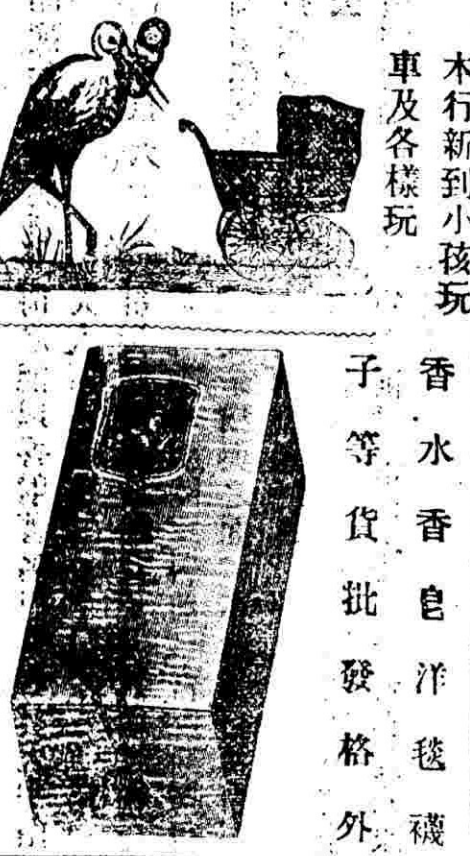 木行新到小孩玩
車及各樣玩
香水香皂洋毯襪
子等貨批發格外